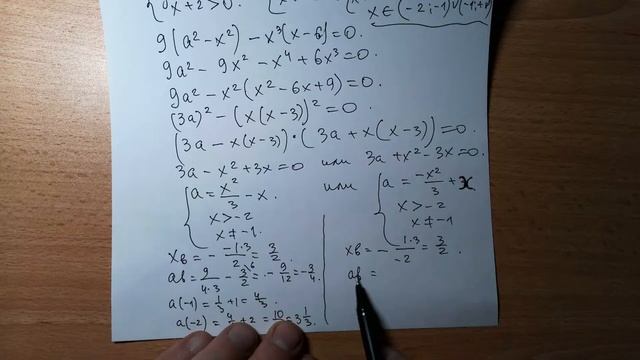 x+2>0.
x∈(-2;-1)∪(-1;+
9(a²-x²)-x³(x-6)=0.
9a²-9x²-x⁴+6x³=0.
9a²-x²(x²-6x+9)=0.
(3a)²-(x(x-3))²=0.
(3a-x(x-3))·(3a+x(x-3))=0.
3a-x²+3x=0 или 3a+x²-3x=0.
{a=x²/3-x. или {a=-x²/3+x
x>-2 x>-2
x≠-1. x≠-1
xв=-(-1·3)/2=3/2.
aв=9/(4·3)-3/2=-9/12=-3/4.
a(-1)=1/3+1=4/3.
a(-2)=4/3+2=10/3=3 1/3.
xв=-(1·3)/-2=3/2.
aв=